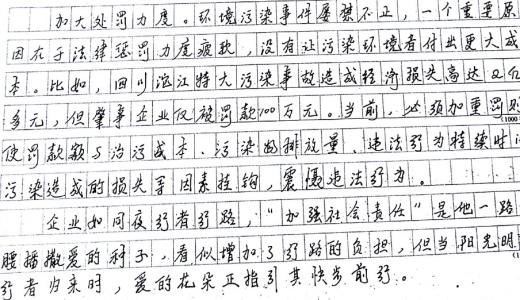 加大处罚力度。环境污染事件屡禁不止，一个重要原
因在于法律惩罚力度疲软，没有让污染环境者付出更大成
本。比如，四川沱江特大污染事故造成经济损失高达2亿
多元，但肇事企业仅被罚款100万元。当前，必须加重罚则
使罚款额与治污成本、污染物排放量、违法行为持续时
污染造成的损失等因素挂钩，震慑违法行为。
(1000)
企业如同夜行者行路，“加强社会责任”是他一路
腰播撒爱的种子，看似增加了行路的负担，但当阳光明
行者归来时，爱的花朵正指引其快步前行。